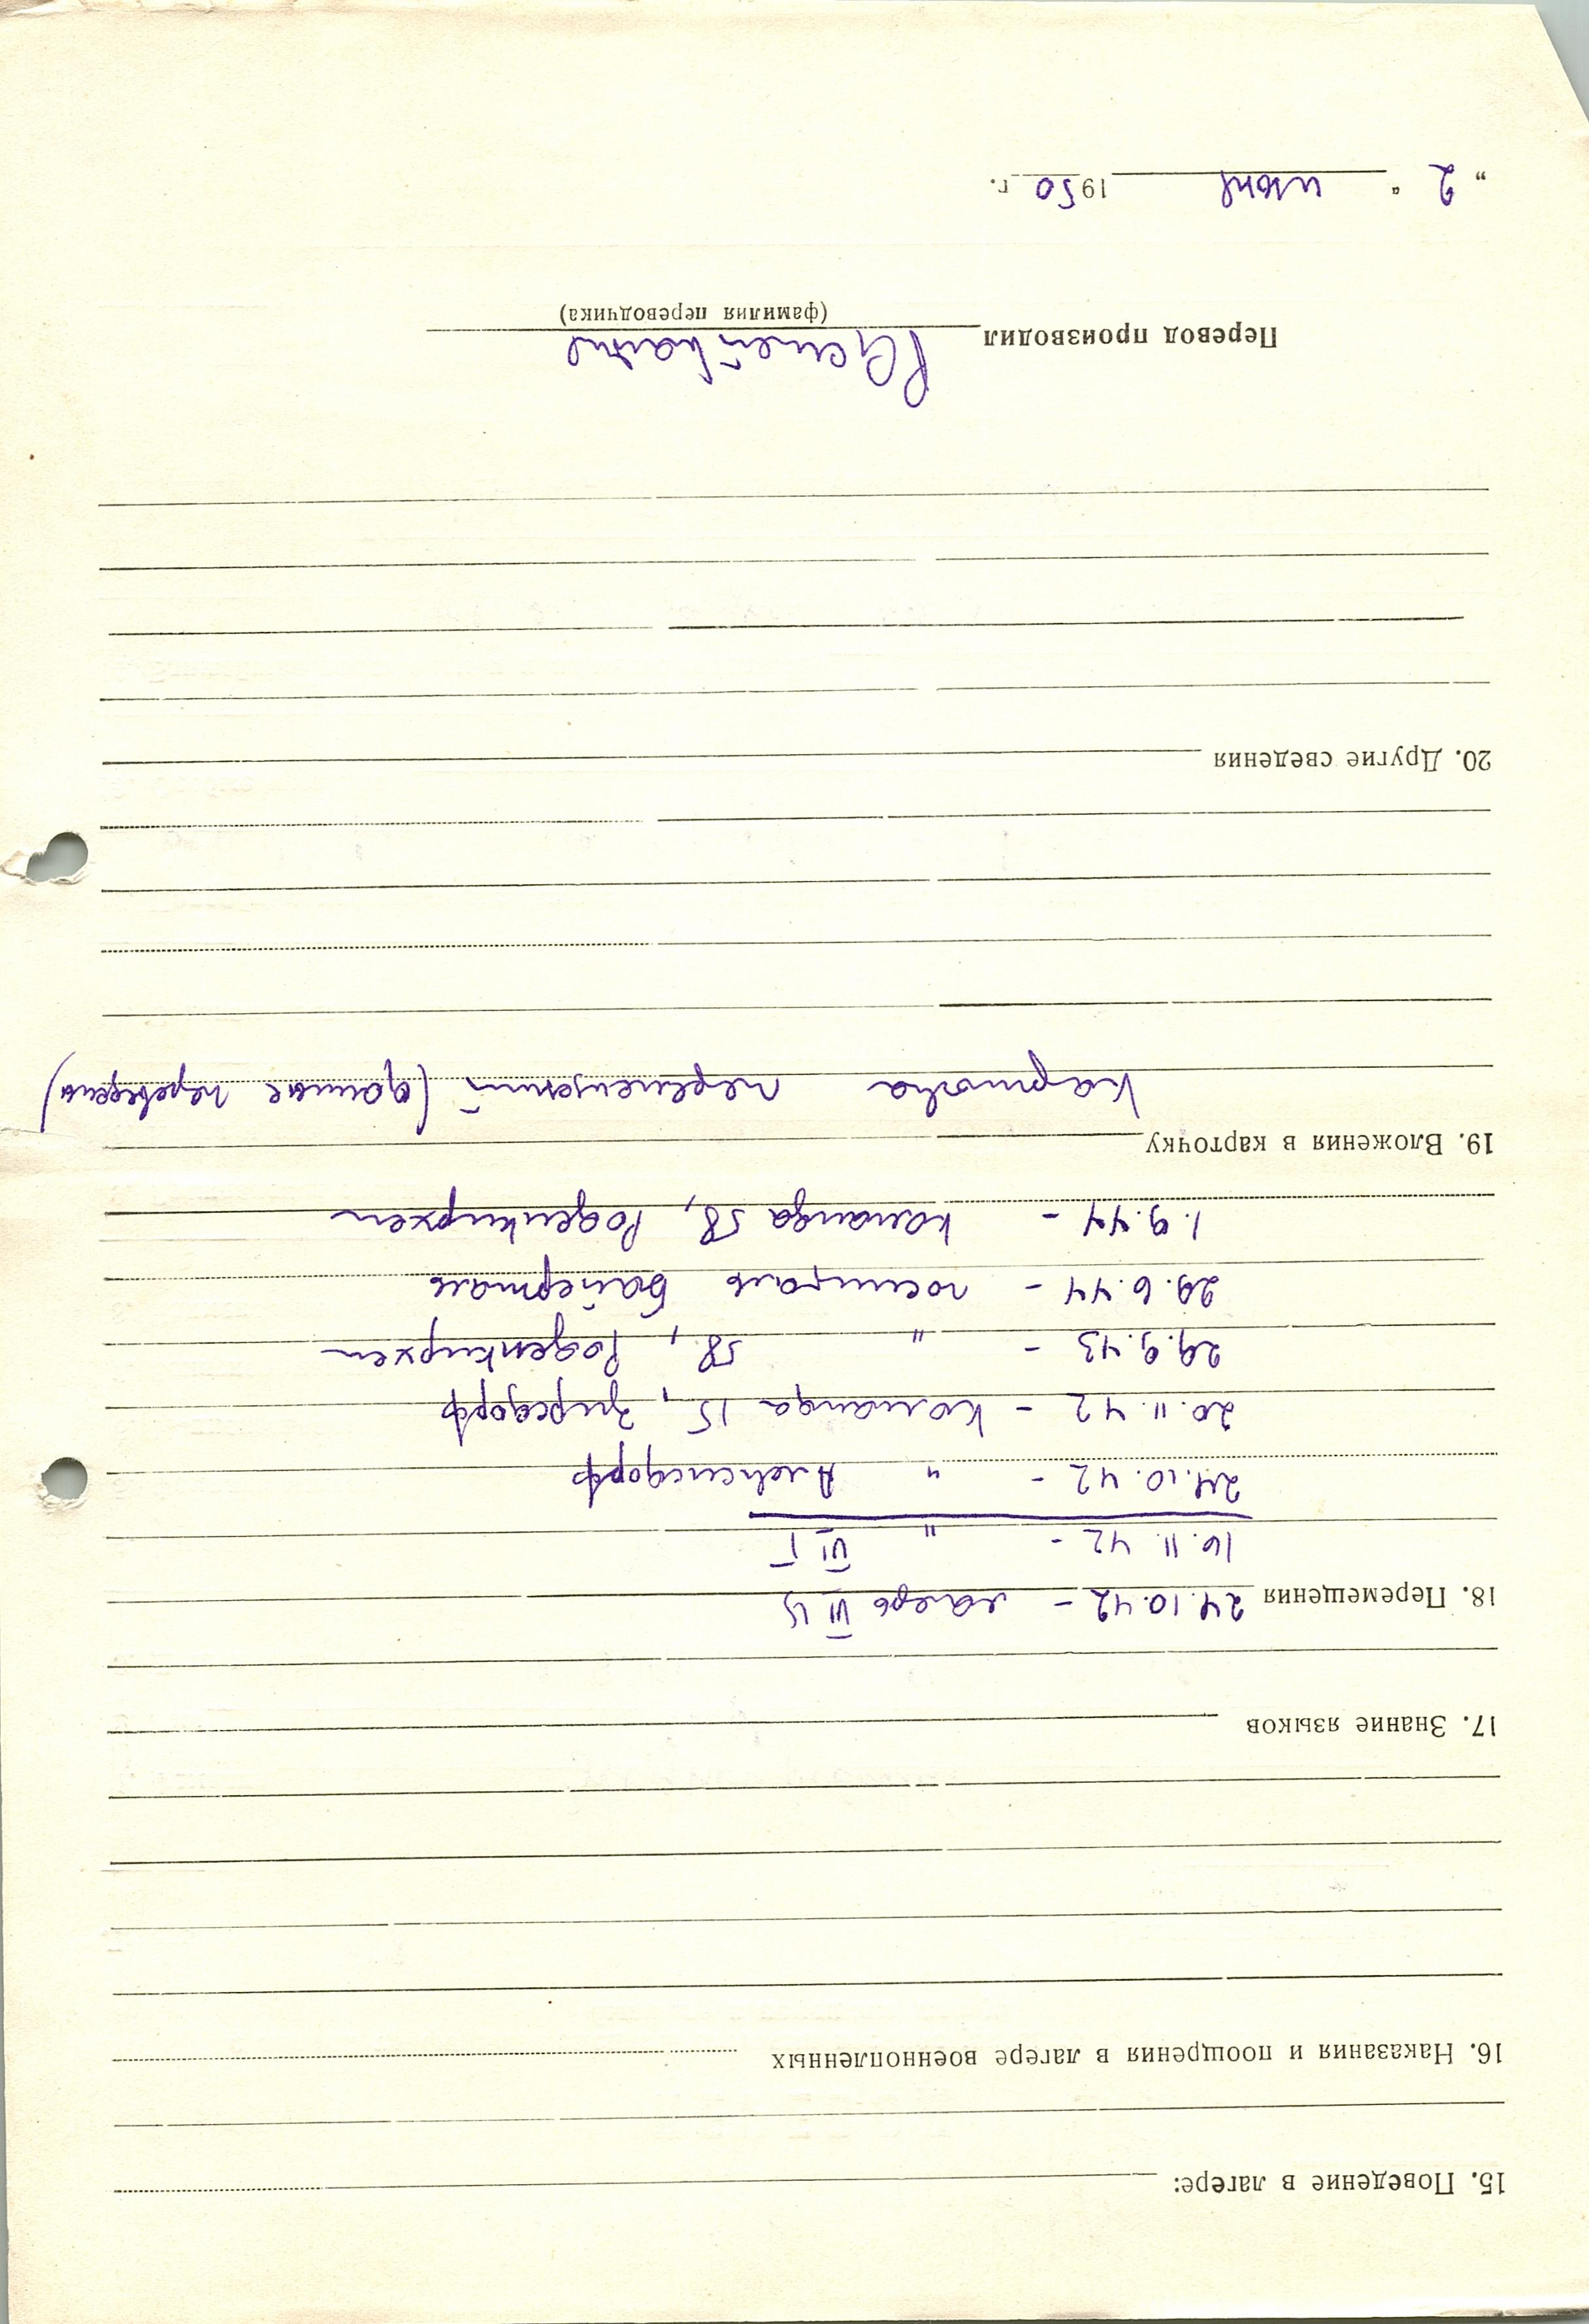 15. Поведение в лагере:
16. Наказания и поощрения в лагере военнопленных
17. Знание языков
18. Перемещения 24.10.42 – лагерь VI
16. 11. 42 – " VI Г
24.10.42 – "
20. 11. 42 – команда 15, Цирсдорф
29.9.43 – " 58, Роденкирхен
29.6.44 – госпиталь Байерталь
1.9.44 – команда 58, Роденкирхен
19. Вложения в карточку
Карточка перемещений (данные переведены)
20. Другие сведения
Перевод производил
(фамилия переводчика)
„ 2 “ июня 1950 г.